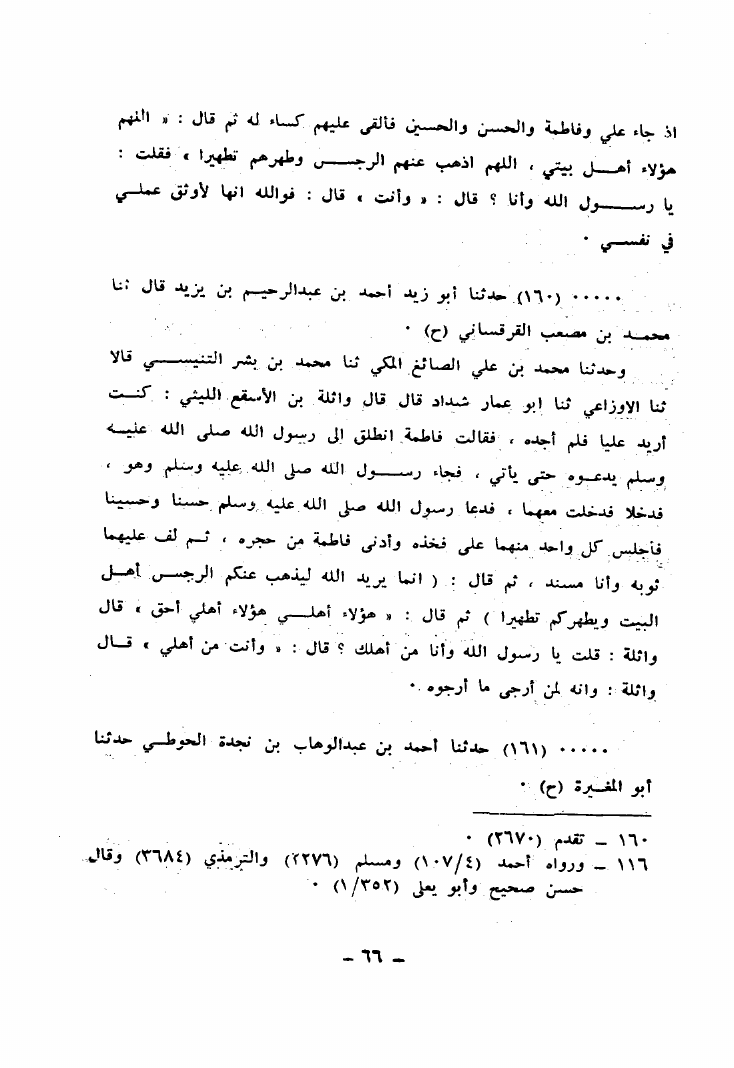 اذ جاء علي وفاطمة والحسن والحسين فألقى عليهم كساء له ثم قال : « اللهم
هؤلاء أهل بيتي ، اللهم اذهب عنهم الرجس وطهرهم تطهيرا » فقلت :
يا رسول الله وأنا ؟ قال : « وأنت » قال : فوالله انها لأوثق عملي
في نفسي ٠
٠٠٠٠٠ (١٦٠) حدثنا أبو زيد أحمد بن عبدالرحيم بن يزيد قال ثنا
محمد بن مصعب القرقساني (ح) ٠
وحدثنا محمد بن علي الصائغ المكي ثنا محمد بن بشر التنيسي قالا
ثنا الاوزاعي ثنا ابو عمار شداد قال قال واثلة بن الأسقع الليثي : كنت
أريد عليا فلم أجده ، فقالت فاطمة انطلق الى رسول الله صلى الله عليه
وسلم يدعوه حتى يأتي ، فجاء رسول الله صلى الله عليه وسلم وهو ،
فدخلا فدخلت معهما ، فدعا رسول الله صلى الله عليه وسلم حسنا وحسينا
فأجلس كل واحد منهما على فخذه وأدنى فاطمة من حجره ، ثم لف عليهما
ثوبه وأنا مسند ، ثم قال : ( انما يريد الله ليذهب عنكم الرجس أهل
البيت ويطهركم تطهيرا ) ثم قال : « هؤلاء أهلي هؤلاء أهلي أحق » قال
واثلة : قلت يا رسول الله وأنا من أهلك ؟ قال : « وأنت من أهلي » قال
واثلة : وانه لمن أرجى ما أرجوه ٠
٠٠٠٠٠ (١٦١) حدثنا أحمد بن عبدالوهاب بن نجدة الحوطي حدثنا
أبو المغيرة (ح) ٠
١٦٠ – تقدم (٢٦٧٠) ٠
١١٦ – ورواه أحمد (١٠٧/٤) ومسلم (٢٢٧٦) والترمذي (٣٦٨٤) وقال
حسن صحيح وأبو يعلى (١/٣٥٢) ٠
– ٦٦ –